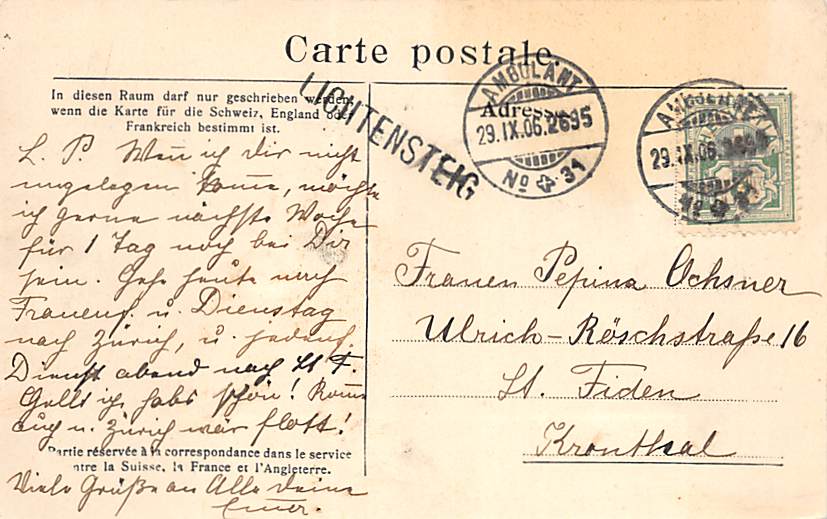 Carte postale.
In diesen Raum darf nur geschrieben werden,
wenn die Karte für die Schweiz, England oder
Frankreich bestimmt ist.
LICHTENSTEIG
AMBULANT
29.IX.06.2695
No 31
Adresse
AMBULANT
29.IX.06
No
L. P. Wen̅ ich Dir nicht
ungelegen kom̅e, möchte
ich gerne nächste Woche
für 1 Tag noch bei Dir
sein. Gehe heute nach
Frauenf. u. Dienstag
nach Zürich, u. jedenf.
Dienst abend nach St. F.
Gellt ich habs schön!
auch u. Zürich wär flott!
Partie réservée à la correspondance dans le service
entre la Suisse, la France et l'Angleterre.
Viele Grüße an Alle Deine
Frauen Pepina Ochsner
Ulrich-Röschstraße 16
St. Fiden
Kronthal